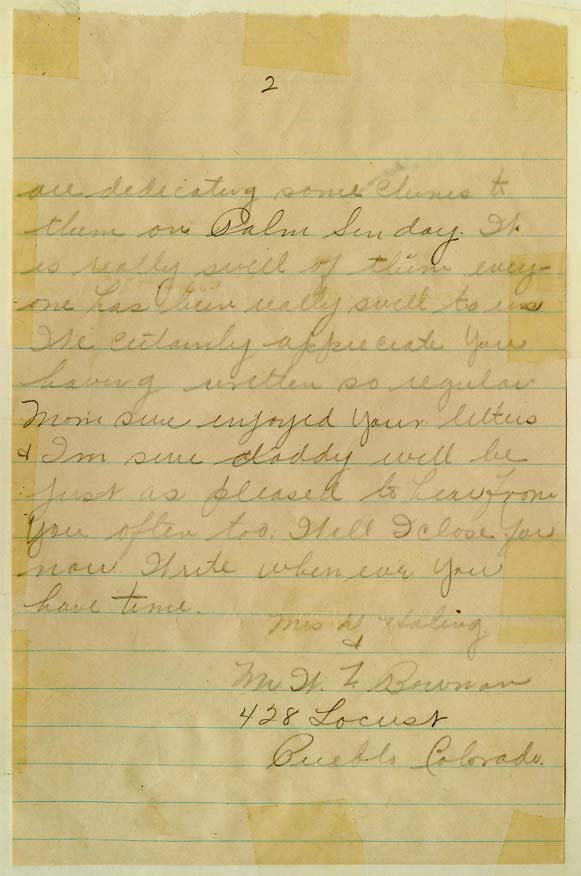 2
are dedicating some Chimes to
them on Palm Sunday. It
is really swell of them every-
one has been really swell to us
We certainly appreciate you
having written so regular
Mom sure enjoyed your letters
& I'm sure daddy will be
just as pleased to hear from
you often too. Well I close for
now Write when ever you
have time.
Mrs
&
Mr W. F. Bowman
428 Locust
Pueblo Colorado.